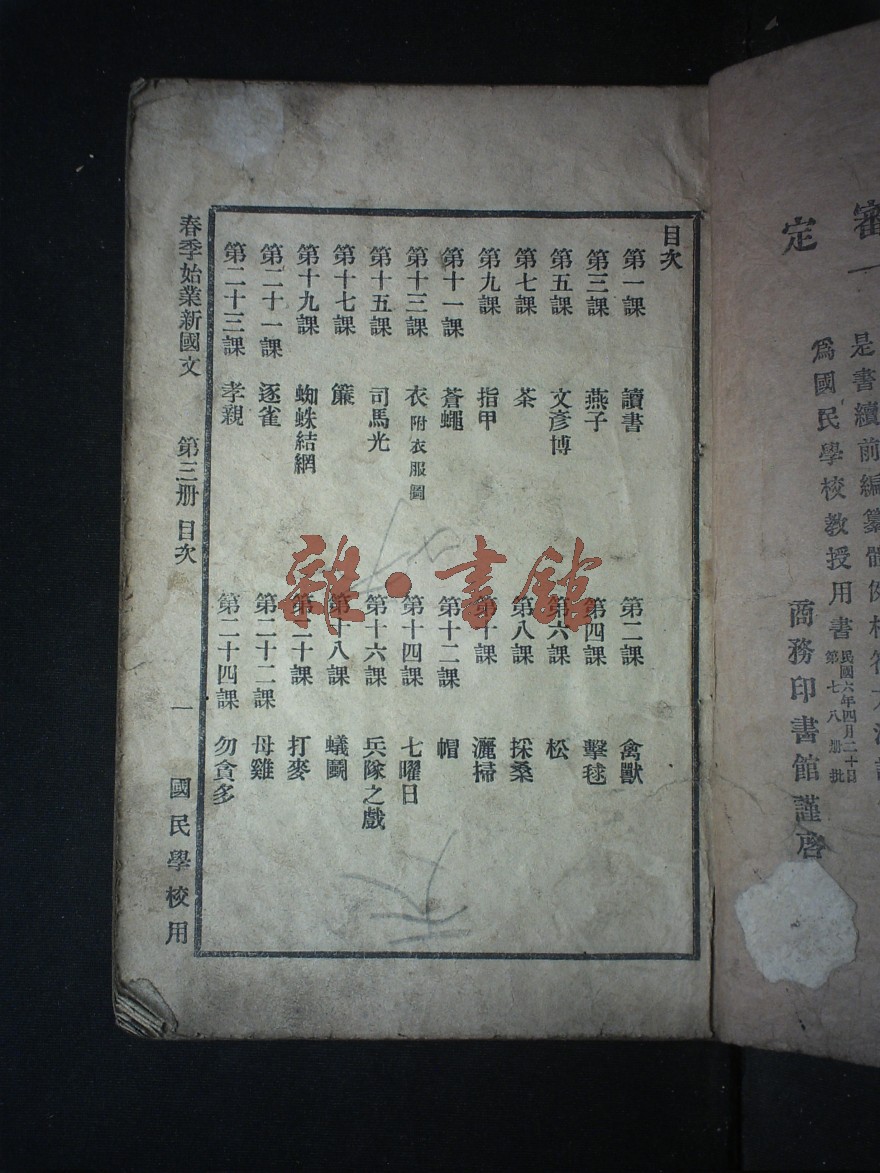 審
定
是書續前編纂體例
爲國民學校教授用書
民國六年四月二十日
第七八册批
商務印書館謹啓
目次
第一課 讀書 第二課 禽獸
第三課 燕子 第四課 擊毬
第五課 文彥博 第六課 松
第七課 茶 第八課 採桑
第九課 指甲 第十課 灑掃
第十一課 蒼蠅 第十二課 帽
第十三課 衣附衣服圖 第十四課 七曜日
第十五課 司馬光 第十六課 兵隊之戲
第十七課 簾 第十八課 蟻鬬
第十九課 蜘蛛結網 第二十課 打麥
第二十一課 逐雀 第二十二課 母雞
第二十三課 孝親 第二十四課 勿貪多
春季始業新國文 第三册 目次 一 國民學校用
雜·書館